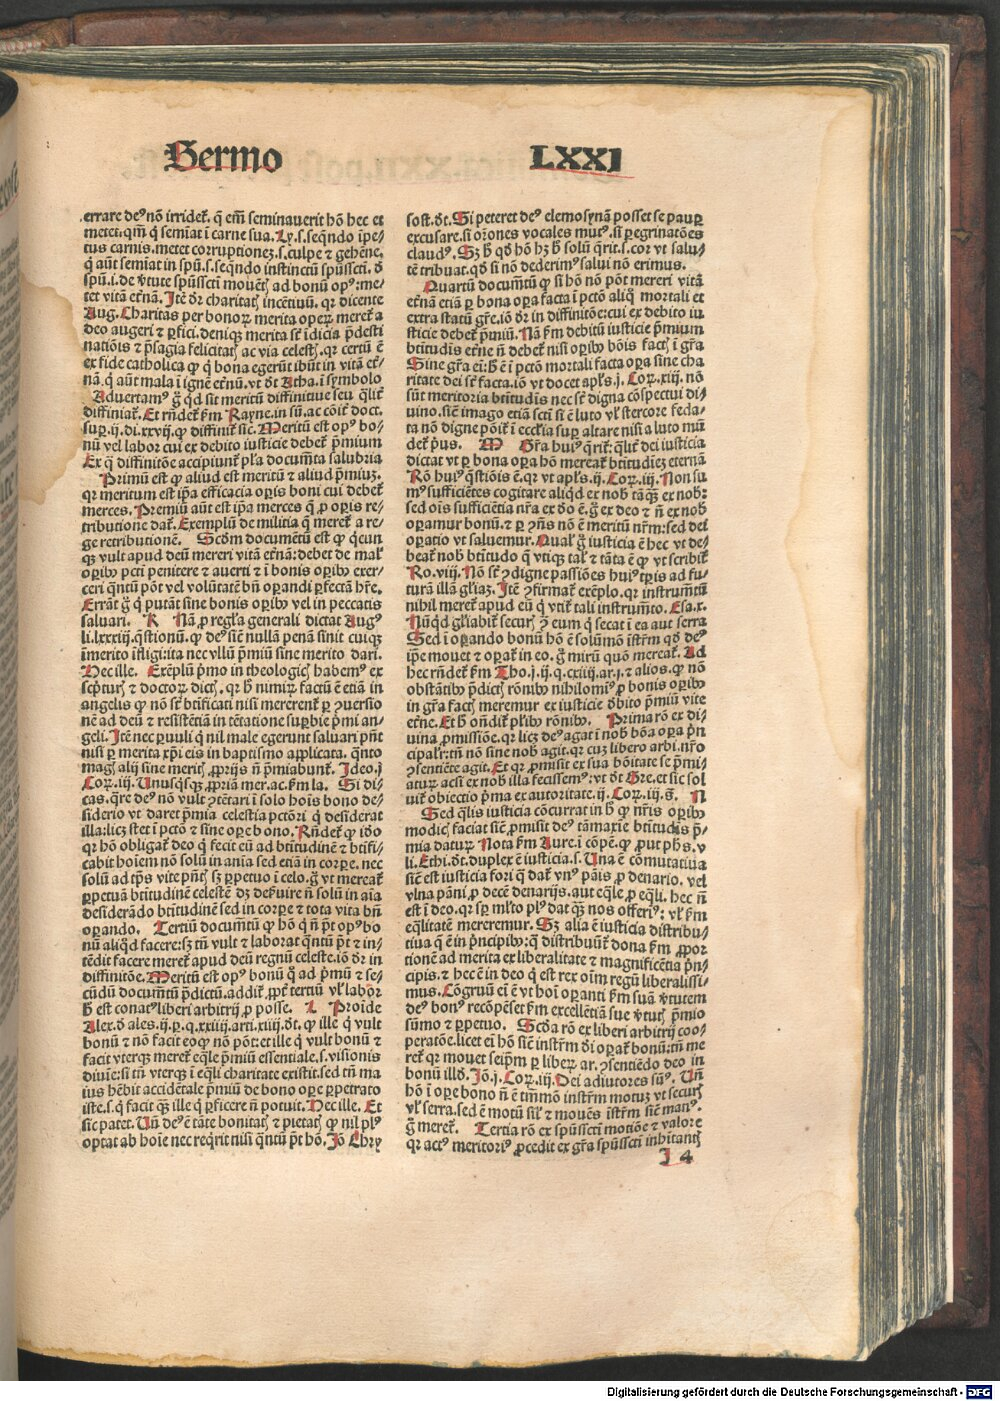 Sermo LXXI
errare deꝰ nō irridet̃. q̄ em̄ seminauerit hō hec et
metet. qm̄ q̄ semīat ī carne sua. Ly. s. seq̄ndo īpe-
tus carnis. metet corruptionez. s. culpe ⁊ gehēne.
q̄ aūt semīat in spū. s. seq̄ndo instinctū spūsscti. d̄
spū. i. de v̄tute spūsscti mouēt̃ ad bonū opꝰ: me-
tet vitā et̃nā. Itē d̄r charitat̃ incētiuū. qr dicente
Aug. Charitas per bonoꝝ merita operū meret̃ a
deo augeri ⁊ ꝑfici. deniqꝫ merita st̃ īdicia p̄desti
natiōis ⁊ p̄sagia felicitat̃ ac via celest̃. qr certū ē
ex fide catholica ꝙ q̄ bona egerūt ibūt in vitā et̃-
nā. q̄ aūt mala ī ignē et̃nū. vt dt̄ Atha. ī symbolo
Aduertamꝰ g̊ qd sit meritū diffinitiue seu qlit̃
diffiniat̃. Et rn̄det̃ ẜm Rayne. in sū. ac cōit̃ doct.
suꝑ. ij. di. xxvij. ꝙ diffinit̃ sic̄. Meritū est opꝰ bo-
nū vel labor cui ex debito iusticie debet̃ p̄mium
Ex q̄ diffinitōe accipiunt̃ pl̃a documēta salubria
Primū est ꝙ aliud est meritū ⁊ aliud p̄miuꝫ.
qr meritum est ip̄a efficacia oꝑis boni cui debet̃
merces. Premiū aūt est ip̄a merces q̄ ꝓ oꝑis re-
tributione dat̃. Exemplū de militia q̄ meret̃ a re-
ge retributionē. Scd̄m documētū est ꝙ q̄cun
qꝫ vult apud deū mereri vitā et̃nā: debet de mal̃
oꝑibꝰ pcti penitere ⁊ auerti ⁊ ī bonis oꝑibꝰ exer-
ceri qntū pōt vel volūtatē bn̄ oꝑandi ꝑfectā hr̄e.
Errāt g̊ q̄ putāt sine bonis oꝑibꝰ vel in peccatis
saluari. K Nā ꝓ regl̃a generali dictat Augꝰ
li. lxxxiij. q̄stionū. ꝙ deꝰ sic̄ nullā penā sinit cuiqꝫ
īmerito īfligi: ita nec vllū p̄miū sine merito dari.
Hec ille. Exēplū pͥmo in theologicꝭ habemꝰ ex
sc̄pturꝭ ⁊ doctoꝝ dictꝭ. qr b̄ nimiꝝ factū ē etiā in
angelis ꝙ nō st̃ btificati nisi mererent̃ ꝑ ꝯuersio
nē ad deū ⁊ resistētiā in tētatione suꝑbie pͥmi an-
geli. Itē nec ꝑuuli q̄ nil male egerunt saluari pn̄t
nisi ꝑ merita xp̄i eis in baptismo applicata. q̄nto
magꝭ alij sine meritꝭ ꝓprijs n̄ p̄miabunt̃. Ideo. j
Coꝝ. iij. Unusqꝫqꝫ ꝓpriā mer. ac. ẜm la. Si di-
cas. qre deꝰ nō vult ꝯtētari ī solo hoīs bono de-
siderio vt daret p̄mia celestia pctōri q̄ desiderat
illa: licꝫ stet ī pctō ⁊ sine oꝑe bono. Rn̄det̃ ꝙ iō
qr hō obligat̃ deo q̄ fecit eū ad btitudinē ⁊ btifi-
cabit hoīem nō solū in aīa sed etiā in corꝑe. nec
solū ad tp̄s vite pn̄tꝭ sꝫ ꝑpetuo ī celo. g̊ vt mereat̃
ꝑpetuā btitudinē celestē dꝫ deẜuire n̄ solū in aīa
desiderādo btitudinē sed in corꝑe ⁊ tota vita bn̄
oꝑando. Tertiū documētū ꝙ hō q̄ n̄ pōt opꝰ bo
nū aliqd facere: sꝫ tn̄ vult ⁊ laborat qntū pōt ⁊ in-
tēdit facere meret̃ apud deū regnū celeste. iō d̄r in
diffinitōe. Meritū est opꝰ bonū q̄ ad p̄mū ⁊ se-
cūdū documētū p̄dictū. addit̃ ꝓpt̃ tertiū vl̃ labor
b̄ est conatꝰ liberi arbitrij ꝓ posse. L Proīde
Alex. d̄ ales. ij. p. q. xxiiij. arti. xiiij. dt̄. ꝙ ille q̄ vult
bonū ⁊ nō facit eo ꝙ nō pōt: et ille q̄ vult bonū ⁊
facit vterqꝫ meret̃ eq̄le p̄miū essentiale. s. visionis
diuīe: si tn̄ vterqꝫ ī eq̄li charitate existit. sed tn̄ ma
ius hēbit accidētale p̄miū de bono oꝑe ꝑpetrato
iste. s. q̄ facit qꝫ ille q̄ ꝑficere n̄ potuit. Hec ille. Et
sic̄ patet. Un̄ deꝰ ē tāte bonitatꝭ ⁊ pietatꝭ ꝙ nil plꝰ
optat ab hoīe nec reqͥrit nisi qntū pōt hō. Iō Chry
sost. dt̄. Si peteret deꝰ elemosynā posset se pauꝑ
excusare. si orōnes vocales mutꝰ. si ꝑegrinatōes
claudꝰ. Sꝫ b̄ qd̄ hō hꝫ b̄ solū q̄rit. s. cor vt salu-
tē tribuat. qd̄ si nō dederimꝰ salui nō erimus.
Quartū documētū ꝙ si hō nō pōt mereri vitā
et̃nā etiā ꝑ bona oꝑa facta ī pctō aliq̄ mortali et
extra statū gr̄e. iō d̄r in diffinitōe: cui ex debito iu
sticie debet̃ p̄miū. Nā ẜm debitū iusticie p̄mium
btitudīs et̃ne n̄ debet̃ nisi oꝑibꝰ bōis factꝭ ī gr̄a
Sine gr̄a ei: b̄ ē ī pctō mortali facta oꝑa sine cha
ritate dei st̃ facta. iō vt docet apl̃s. j. Coꝝ. xiij. nō
sūt meritoria btitudīs nec st̃ digna cōspectui di-
uino. sic̄ imago etiā scti si ē luto vl̃ stercore feda-
ta nō digne pōit̃ ī eccl̃ia suꝑ altare nisi a luto mū
det̃ pͥus. M Gr̄a huiꝰ q̄rit̃: qlit̃ dei iusticia
dictat vt ꝑ bona oꝑa hō mereat̃ btitudieꝫ eternā
Rō huiꝰ q̄stiōis ē. qr vt apl̃s. ij. Coꝝ. iij. Non su
mꝰ sufficiētes cogitare aliqd ex nob̄ tāqꝫ ex nob̄:
sed oīs sufficiētia nr̄a ex dō ē. g̊ ex deo ⁊ n̄ ex nob̄
oꝑamur bonū. ⁊ ꝑ ꝯn̄s nō ē meritū nr̄m: sed dei
oꝑatio vt saluemur. Qual̃ g̊ iusticia ē hec vt de-
beat̃ nob̄ btitudo q̄ vtiqꝫ tal̃ ⁊ tāta ē ꝙ vt scribit̃
Ro. viij. Nō st̃ ꝯdigne passiōes huiꝰ tp̄is ad fu-
turā illā gl̃iaꝫ. Itē ꝯfirmat̃ exēplo. qr instrumtū
nihil meret̃ apud eū q̄ vtit̃ tali instrumt̄o. Esa. x.
Nūqd gl̃iabit̃ securꝭ ꝯ eum q̄ secat ī ea aut serra
Sed ī oꝑando bonū hō ē solūmō īstr̄m qd̄ deꝰ
ip̄e mouet ⁊ oꝑat̃ in eo. g̊ mirū quō mereat̃. Ad
hec rn̄det̃ ẜm Tho. j. ij. q. cxiiij. ar. j. ⁊ alios. ꝙ nō
obstātibꝰ p̄dictꝭ rōnibꝰ nihilomīꝰ ꝓ bonis oꝑibꝰ
in gr̄a factꝭ meremur ex iusticie d̄bito p̄miū vite
et̃ne. Et b̄ oñdit̃ pl̃ibꝰ rōnibꝰ. Prima rō ex di-
uina ꝓmissiōe. qr licꝫ deꝰ agat ī nob̄ bōa oꝑa pͥn
cipalit̃: tn̄ nō sine nob̄ agit. qr cuꝫ libero arbi. nr̄o
ꝯsentiēte agit. Et qr ꝓmisit ex sua bōitate se p̄mi-
aturꝝ acsi ex nob̄ illa fecissemꝰ: vt dt̄ Gre. et sic̄ sol
uit̃ obiectio pͥma ex autoritate. ij. Coꝝ. iij. s̄. N
Sed q̄lis iusticia cōcurrat in b̄ ꝙ nr̄is oꝑibꝰ
modicꝭ faciat sic̄ ꝓmisit deꝰ tāmaxīe btitudīs p̄-
mia daturꝝ. Nota ẜm Aure. ī cōpē. ꝙ ꝓut phs̄. v
li. Ethi. dt̄. duplex ē iusticia. s. Una ē cōmutatiua
sic̄ est iusticia fori q̄ dat̃ vnꝰ pāis ꝓ denario. vel
vlna pāni ꝓ decē denarijs. aut eq̄le ꝓ eq̄li. hec n̄
est ī deo. qr sꝑ ml̃to plꝰ dat qꝫ nos offerimꝰ: vl̃ ẜm
eq̄litatē mereremur. Sꝫ alia ē iusticia distribu-
tiua q̄ ē in pͥncipibꝰ: q̄ distribuūt̃ dona ẜm ꝓpor
tionē ad merita ex liberalitate ⁊ magnificētia pͥn-
cipis. ⁊ hec ē in deo q̄ est rex oīm regū liberalissi-
mus. Cōgruū ei ē vt hoī oꝑanti ẜm suā v̄tutem
deꝰ bonꝰ recōpēset ẜm excellētiā sue v̄tutꝭ p̄mio
sūmo ⁊ ꝑpetuo. Scd̄a rō ex liberi arbitrij coo-
peratōe. licet ei hō sic̄ instr̄m d̄i oꝑat̃ bonū: tn̄ me
ret̃ qr mouet seip̄m ꝑ liberꝝ ar. ꝯsentiēdo deo in
bonū illd̄. Iō. j. Coꝝ. iij. Dei adiutores sūꝰ. Un̄
hō ī oꝑe bono n̄ ē tm̄mō instr̄m motuꝫ vt securꝭ
vl̃ serra. sed ē motū sil̃ ⁊ mouēs īstr̄m sic̄ manꝰ.
g̊ meret̃. Tertia rō ex spūsscti motiōe ⁊ valore
qr actꝰ meritoriꝰ ꝓcedit ex gr̄a spūsscti inhītantꝭ
I 4
Digitalisierung gefördert durch die Deutsche Forschungsgemeinschaft - DFG